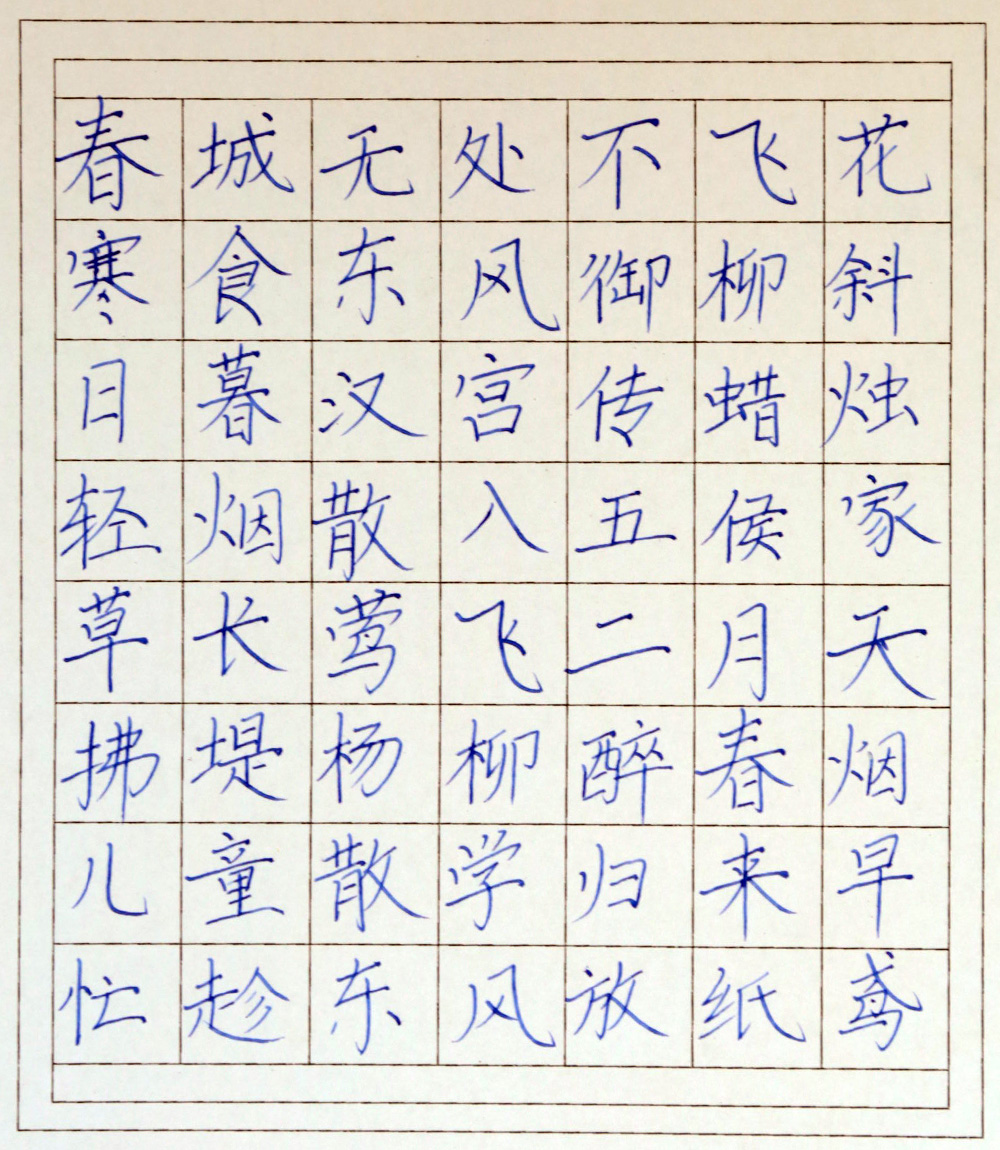 春城无处不飞花
寒食东风御柳斜
日暮汉宫传蜡烛
轻烟散八五侯家
草长莺飞二月天
拂堤杨柳醉春烟
儿童散学归来早
忙趁东风放纸鸢